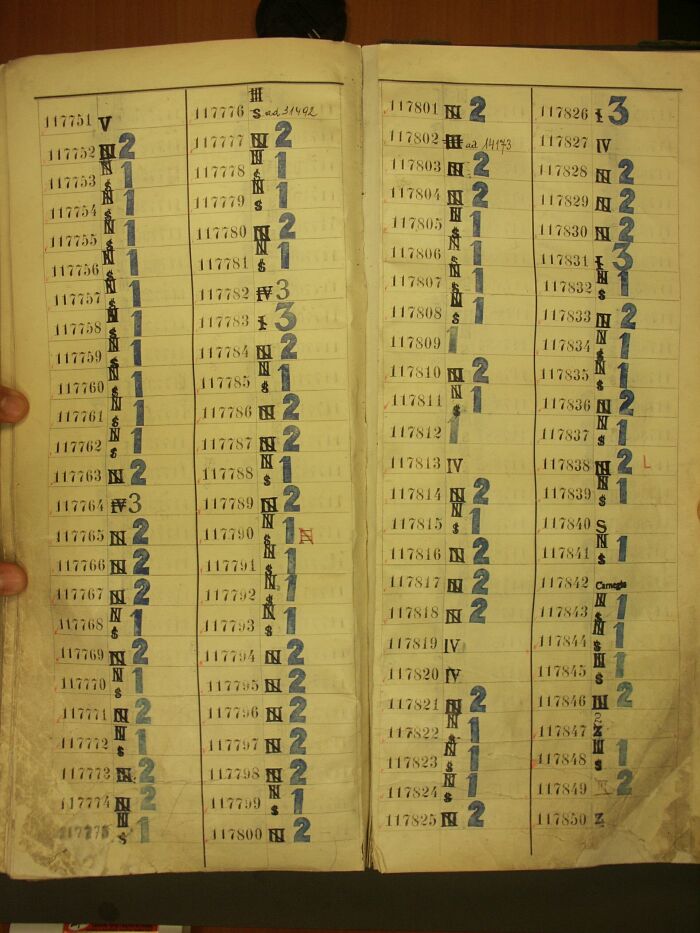 117751 V
117752 N 2
117753 N S 1
117754 N S 1
117755 N S 1
117756 N S 1
117757 N S 1
117758 N S 1
117759 N S 1
117760 N S 1
117761 N S 1
117762 N S 1
117763 N 2
117764 IV 3
117765 N 2
117766 N 2
117767 N 2
117768 N S 1
117769 N 2
117770 N S 1
117771 N 2
117772 N S 1
117773 N 2
117774 N 2
117775 N S 1
117776 III S ad 31492
117777 N 2
117778 N S 1
117779 N S 1
117780 N 2
117781 N S 1
117782 IV 3
117783 I 3
117784 N 2
117785 N S 1
117786 N 2
117787 N 2
117788 N S 1
117789 N 2
117790 N S 1 N
117791 N S 1
117792 N S 1
117793 N S 1
117794 N 2
117795 N 2
117796 N 2
117797 N 2
117798 N 2
117799 N S 1
117800 N 2
117801 N 2
117802 III ad 14173
117803 N 2
117804 N 2
117805 N S 1
117806 N S 1
117807 N S 1
117808 N S 1
117809 1
117810 N 2
117811 N S 1
117812 1
117813 IV
117814 N 2
117815 N S 1
117816 N 2
117817 N 2
117818 N 2
117819 IV
117820 IV
117821 N 2
117822 N S 1
117823 N S 1
117824 N S 1
117825 N 2
117826 I 3
117827 IV
117828 N 2
117829 N 2
117830 N 2
117831 I 3
117832 N S 1
117833 N 2
117834 N S 1
117835 N S 1
117836 N 2
117837 N S 1
117838 N 2 L
117839 N S 1
117840 S
117841 N S 1
117842 Carnegie
117843 N S 1
117844 N S 1
117845 N S 1
117846 2
117847 2 Z
117848 S 1
117849 2
117850 Z